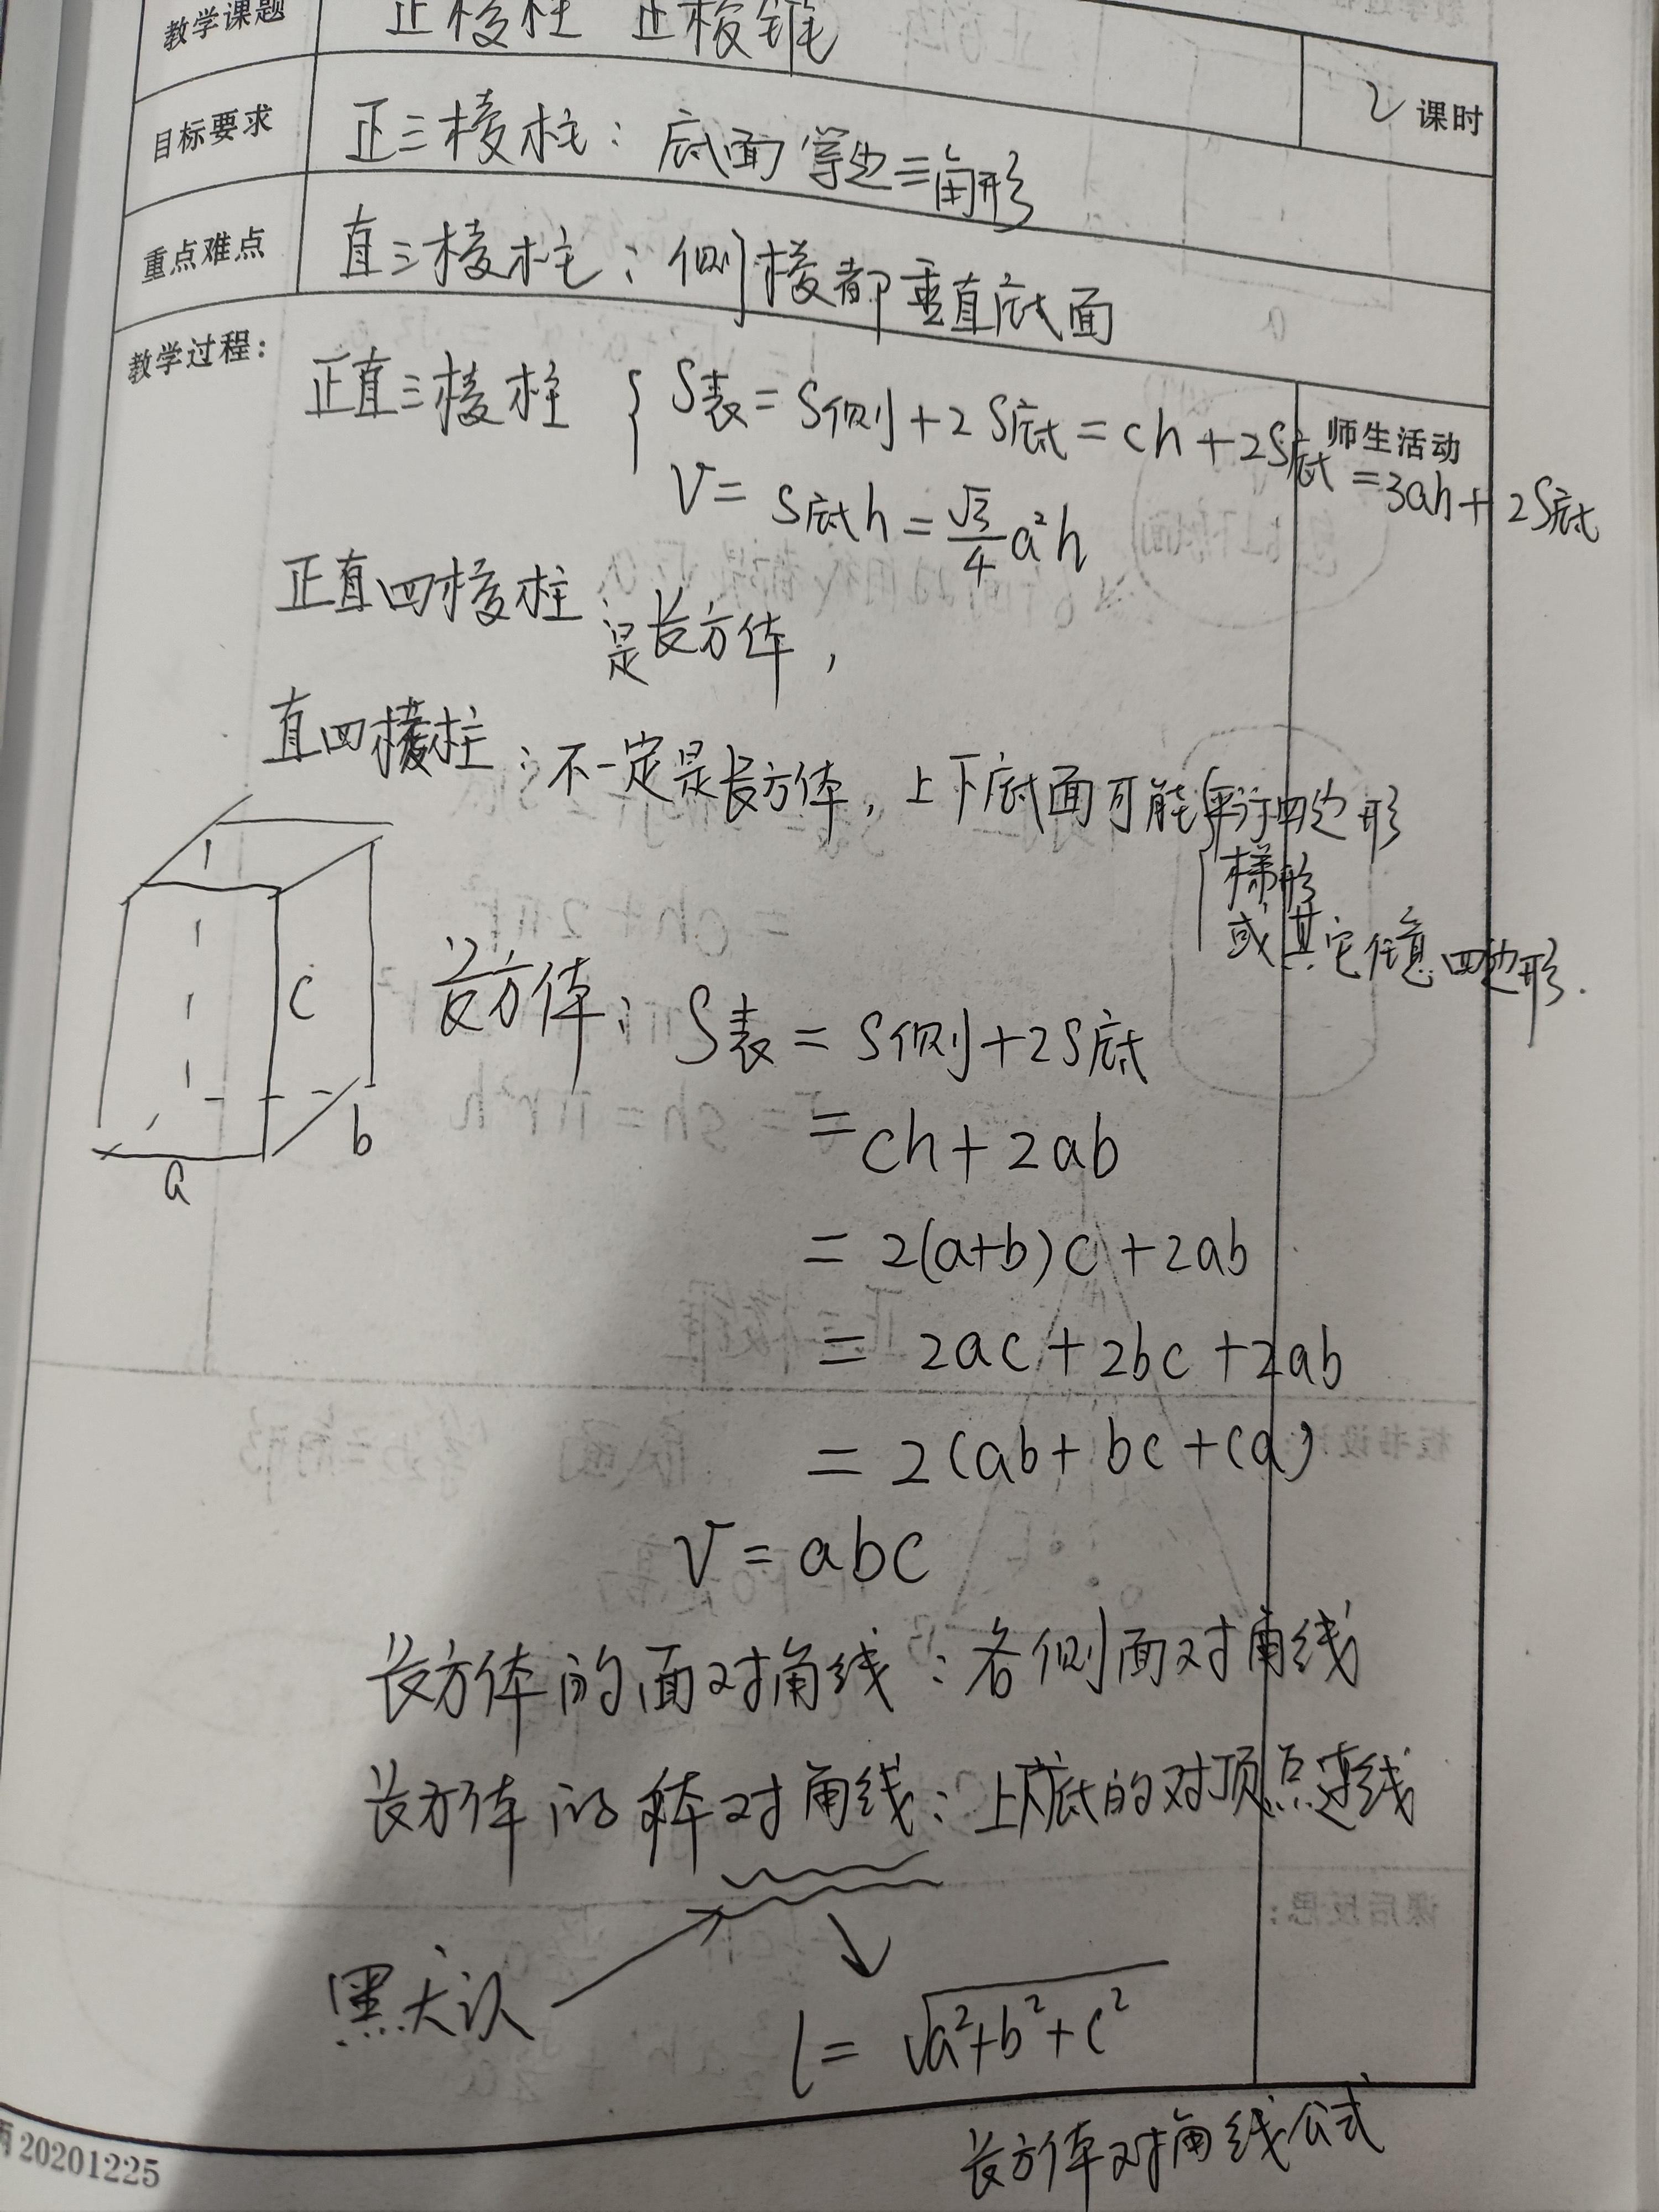 教学课题 正棱柱 正棱锥
2 课时
目标要求 正三棱柱：底面等边三角形
重点难点 直三棱柱：侧棱都垂直底面
教学过程：
师生活动
正直三棱柱 { S表=S侧+2S底=ch+2S底=3ah+2S底
V=S底h=√3/4 a²h
正直四棱柱：是长方体，
直四棱柱：不一定是长方体，上下底面可能{平行四边形
梯形
或其它任意四边形.
c
b
a
长方体：S表=S侧+2S底
=ch+2ab
=2(a+b)c+2ab
=2ac+2bc+2ab
=2(ab+bc+ca)
V=abc
长方体的面对角线：各侧面对角线
长方体的体对角线：上下底的对顶点连线
默认
l=√a²+b²+c²
长方体对角线公式
20201225